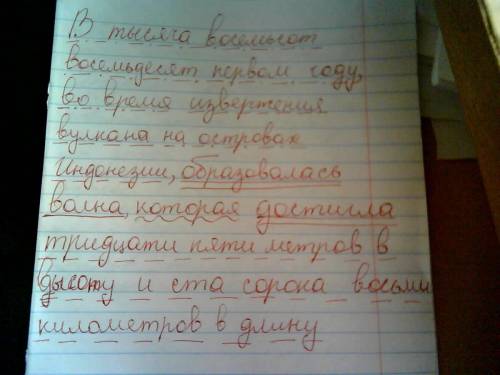 В тысяга восемьсот
восемьдесят первом году,
во время извержения
вулкана на островах
Индонезии, образовалась
волна, которая достигла
тридцати пяти метров в
высоту и ста сорока восьми
километров в длину